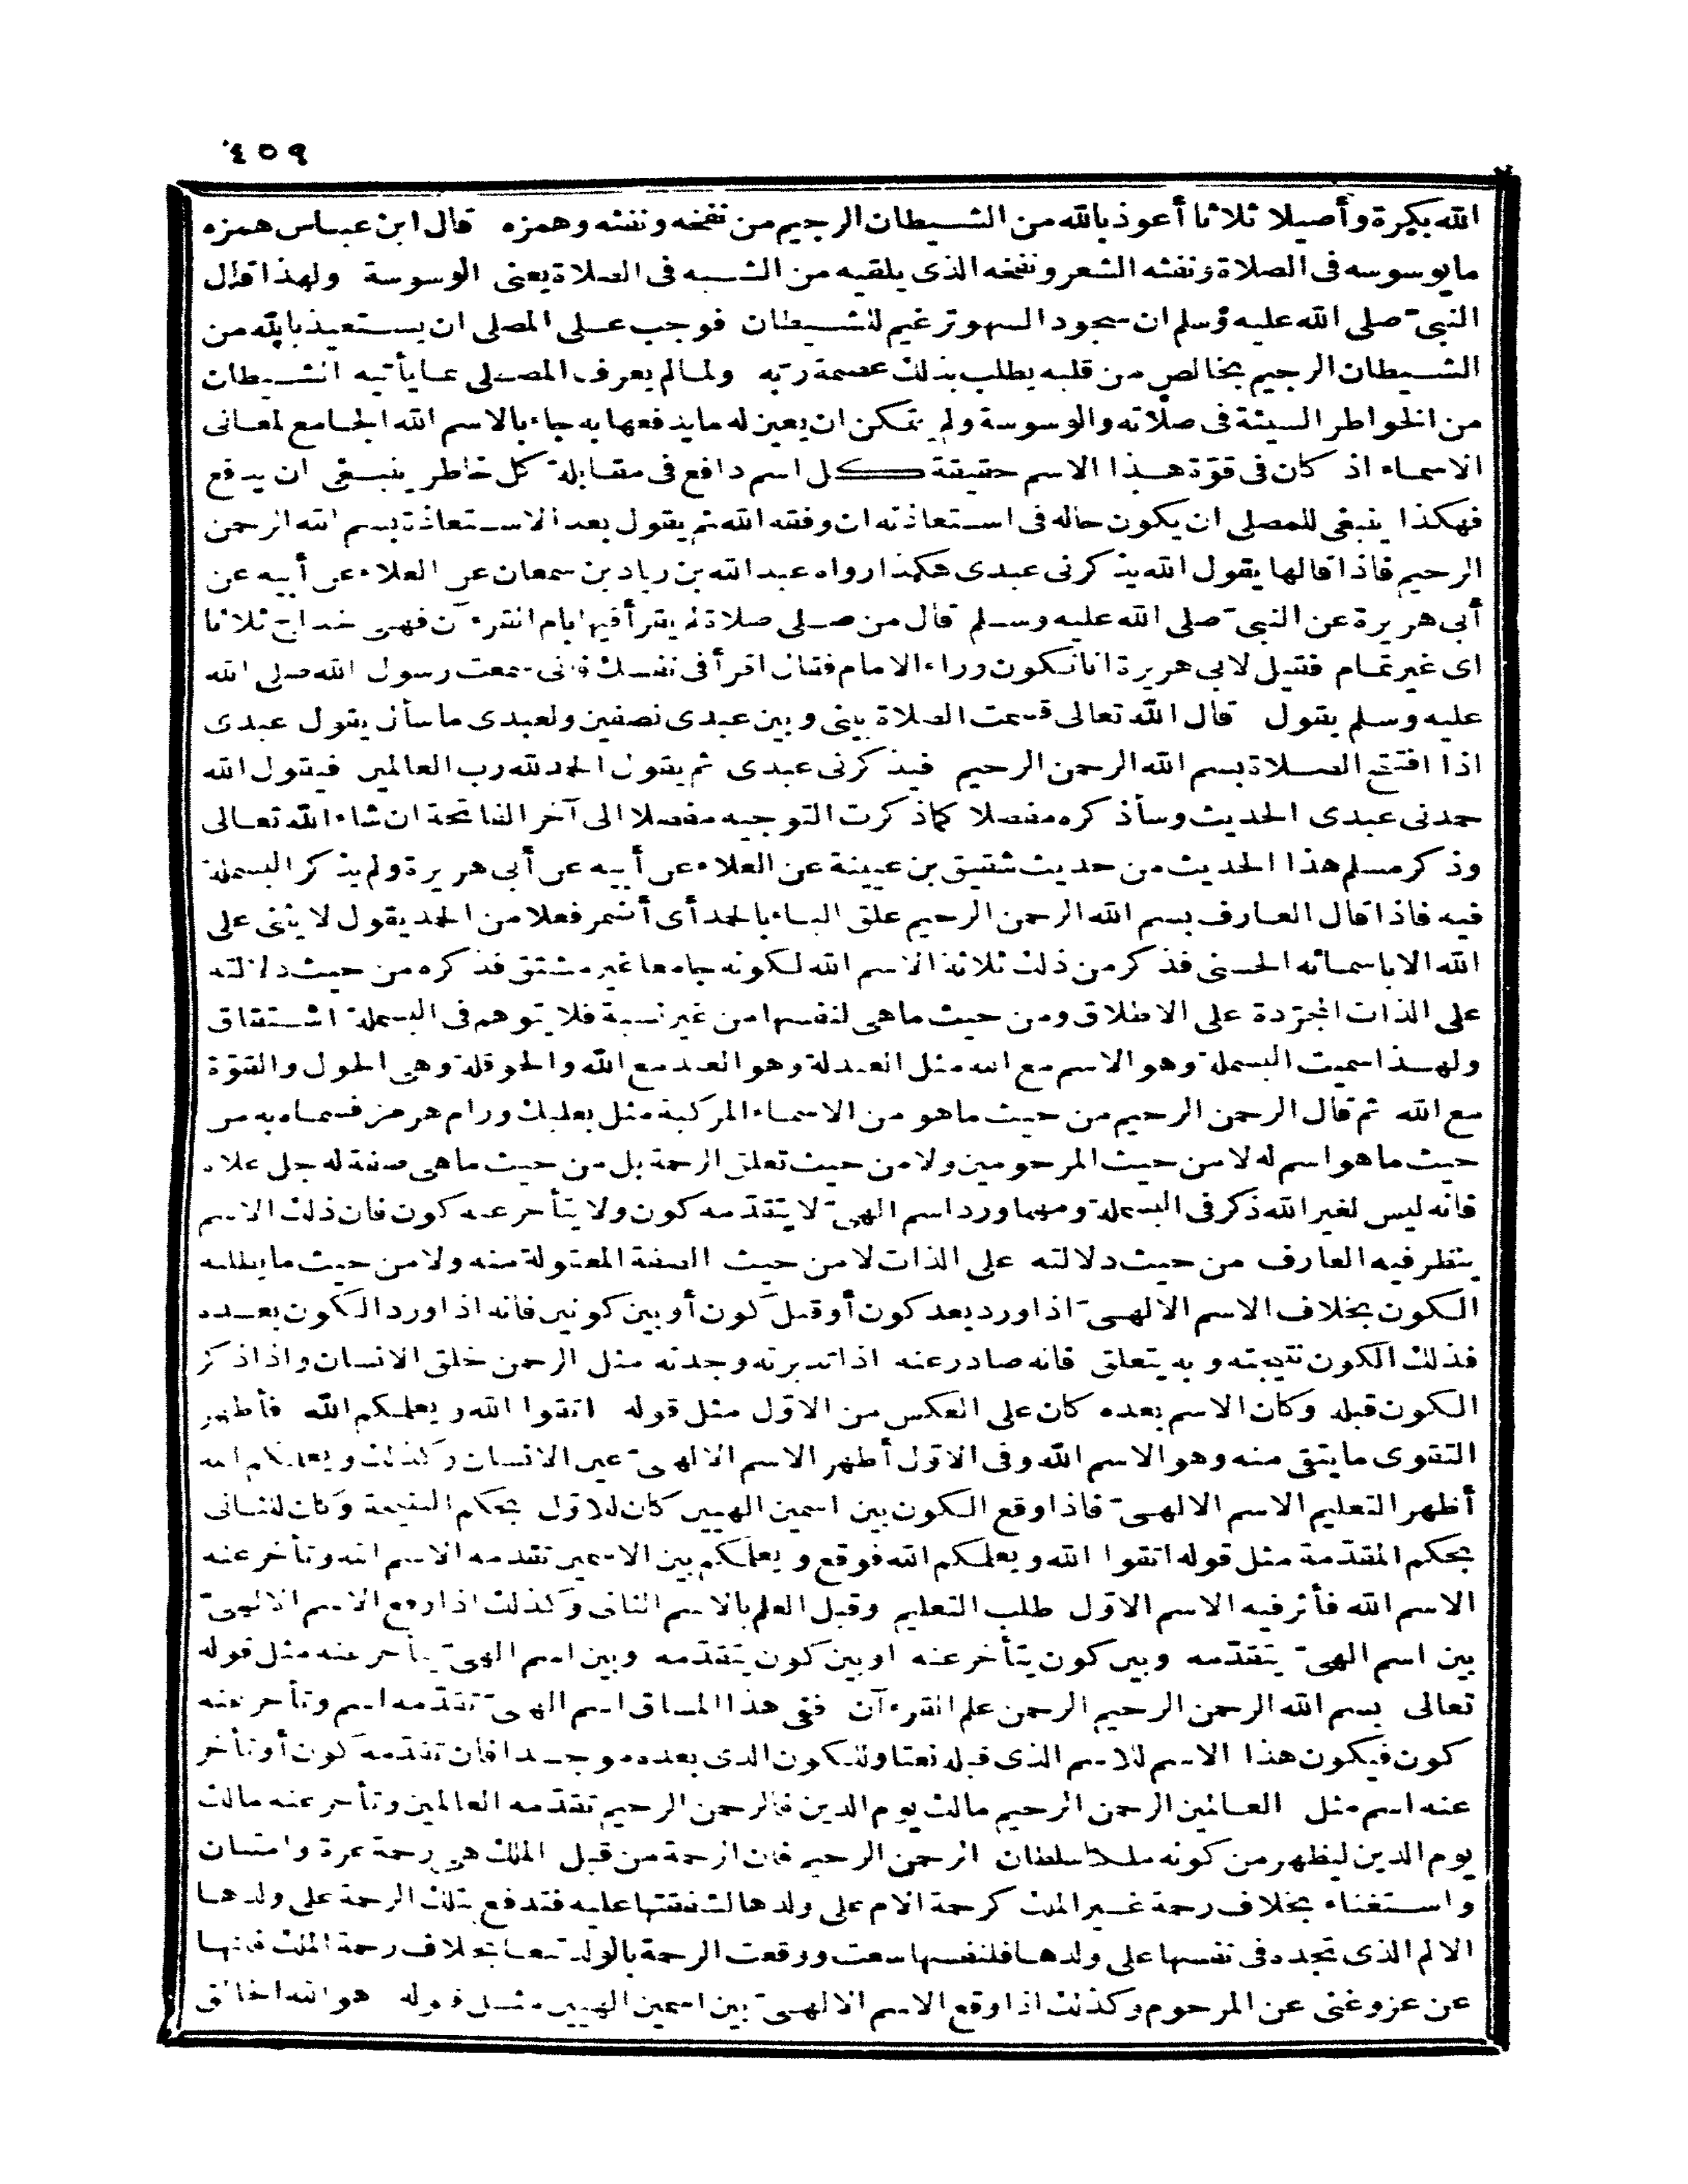 ٤٥٩
الله بكرة وأصيلا ثلاثا أعوذ بالله من الشيطان الرجيم من نفخه ونفثه وهمزه قال ابن عباس همزه
ما يوسوسه فى الصلاة ونفثه الشعر ونفخه الذى يلقيه من الشبه فى الصلاة يعنى الوسوسة ولهذا قال
النبىّ صلى الله عليه وسلم ان سجود السهو ترغيم للشيطان فوجب على المصلى ان يستعيذ بالله من
الشيطان الرجيم بخالص من قلبه يطلب بذلك عصمة ربه ولما لم يعرف المصلى بما يأتيه الشيطان
من الخواطر السيئة فى صلاته والوسوسة ولم يتمكن ان يعين له ما يدفعها به جاء بالاسم الله الجامع لمعانى
الاسماء اذ كان فى قوّة هذا الاسم حقيقة كل اسم دافع فى مقابلة كل خاطر ينبغى ان يدفع
فهكذا ينبغى للمصلى ان يكون حاله فى استعاذته ان وفقه الله ثم يقول بعد الاستعاذة بسم الله الرحمن
الرحيم فاذا قالها يقول الله يذكرنى عبدى هكذا رواه عبد الله بن زياد بن سمعان عن العلاء عن أبيه عن
أبى هريرة عن النبىّ صلى الله عليه وسلم قال من صلى صلاة لم يقرأ فيها بام القرءآن فهى خداج ثلاثا
اى غير تمام فقيل لابى هريرة انا نكون وراء الامام فقال اقرأ فى نفسك فانى سمعت رسول الله صلى الله
عليه وسلم يقول قال الله تعالى قسمت الصلاة بينى وبين عبدى نصفين ولعبدى ما سأل يقول عبدى
اذا افتتح الصلاة بسم الله الرحمن الرحيم فيذكرنى عبدى ثم يقول الحمد لله رب العالمين فيقول الله
حمدنى عبدى الحديث وسأذكره مفصلا كما ذكرت التوجيه مفصلا الى آخر الفاتحة ان شاء الله تعالى
وذكر مسلم هذا الحديث من حديث شقيق بن عيينة عن العلاء عن أبيه عن أبى هريرة ولم يذكر البسملة
فيه فاذا قال العارف بسم الله الرحمن الرحيم علق الباء بالحمد أى أضمر فعلا من الحمد يقول لا يثنى على
الله الا باسمائه الحسنى فذكر من ذلك ثلاثة الاسم الله لكونه جامعا غير مشتق فذكره من حيث دلالته
على الذات المجرّدة على الاطلاق ومن حيث ما هى لنفسها من غير نسبة فلا يتوهم فى البسملة اشتقاق
ولهذا سميت البسملة وهو الاسم مع الله مثل العبدلة وهو العبد مع الله والحوقلة وهى الحول والقوّة
مع الله ثم قال الرحمن الرحيم من حيث ما هو من الاسماء المركبة مثل بعلبك ورام هرمز فسماه به من
حيث ما هو اسم له لا من حيث المرحومين ولا من حيث تعلق الرحمة بل من حيث ما هى صفة له جل علاه
فانه ليس لغير الله ذكر فى البسملة ومهما ورد اسم الهىّ لا يتقدّمه كون ولا يتأخر عنه كون فان ذلك الاسم
ينظر فيه العارف من حيث دلالته على الذات لا من حيث الصفة المعقولة منه ولا من حيث ما يطلبه
الكون بخلاف الاسم الالهىّ اذا ورد بعد كون أو قبل كون أو بين كونين فانه اذا ورد الكون بعده
فذلك الكون نتيجته وبه يتعلق فانه صادر عنه اذا تدبرته وجدته مثل الرحمن خلق الانسان واذا ذكر
الكون قبله وكان الاسم بعده كان على العكس من الاوّل مثل قوله اتقوا الله ويعلمكم الله فأظهر
التقوى ما يتقى منه وهو الاسم الله وفى الاوّل أظهر الاسم الالهىّ عين الانسان وكذلك ويعلمكم الله
أظهر التعليم الاسم الالهىّ فاذا وقع الكون بين اسمين الهيين كان للاوّل بحكم النتيجة وكان للثانى
بحكم المقدّمة مثل قوله اتقوا الله ويعلمكم الله فوقع ويعلمكم بين الاسمين تقدمه الاسم الله وتأخر عنه
الاسم الله فأثر فيه الاسم الاوّل طلب التعليم وقبل العلم بالاسم الثانى وكذلك اذا وقع الاسم الالهىّ
بين اسم الهىّ يتقدّمه وبين كون يتأخر عنه او بين كون يتقدّمه وبين اسم الهىّ يتأخر عنه مثل قوله
تعالى بسم الله الرحمن الرحيم الرحمن علم القرءآن ففى هذا المساق اسم الهىّ تقدّمه اسم وتأخر عنه
كون فيكون هذا الاسم للاسم الذى قبله نعتا وللكون الذى بعده موجدا فان تقدّمه كون أو تأخر
عنه اسم مثل العالمين الرحمن الرحيم مالك يوم الدين فالرحمن الرحيم تقدّمه العالمين وتأخر عنه مالك
يوم الدين ليظهر من كونه ملكا سلطان الرحمن الرحيم فان الرحمة من قبل الملك هى رحمة عزة وامتنان
واستغناء بخلاف رحمة غير الملك كرحمة الام على ولدها لشفقتها عليه فتدفع بتلك الرحمة على ولدها
الالم الذى تجده فى نفسها على ولدها فلنفسها سعت ووقعت الرحمة بالولد تبعا بخلاف رحمة الملك فانها
عن عز وغنى عن المرحوم وكذلك اذا وقع الاسم الالهىّ بين اسمين الهيين مثل قوله هو الله الخالق